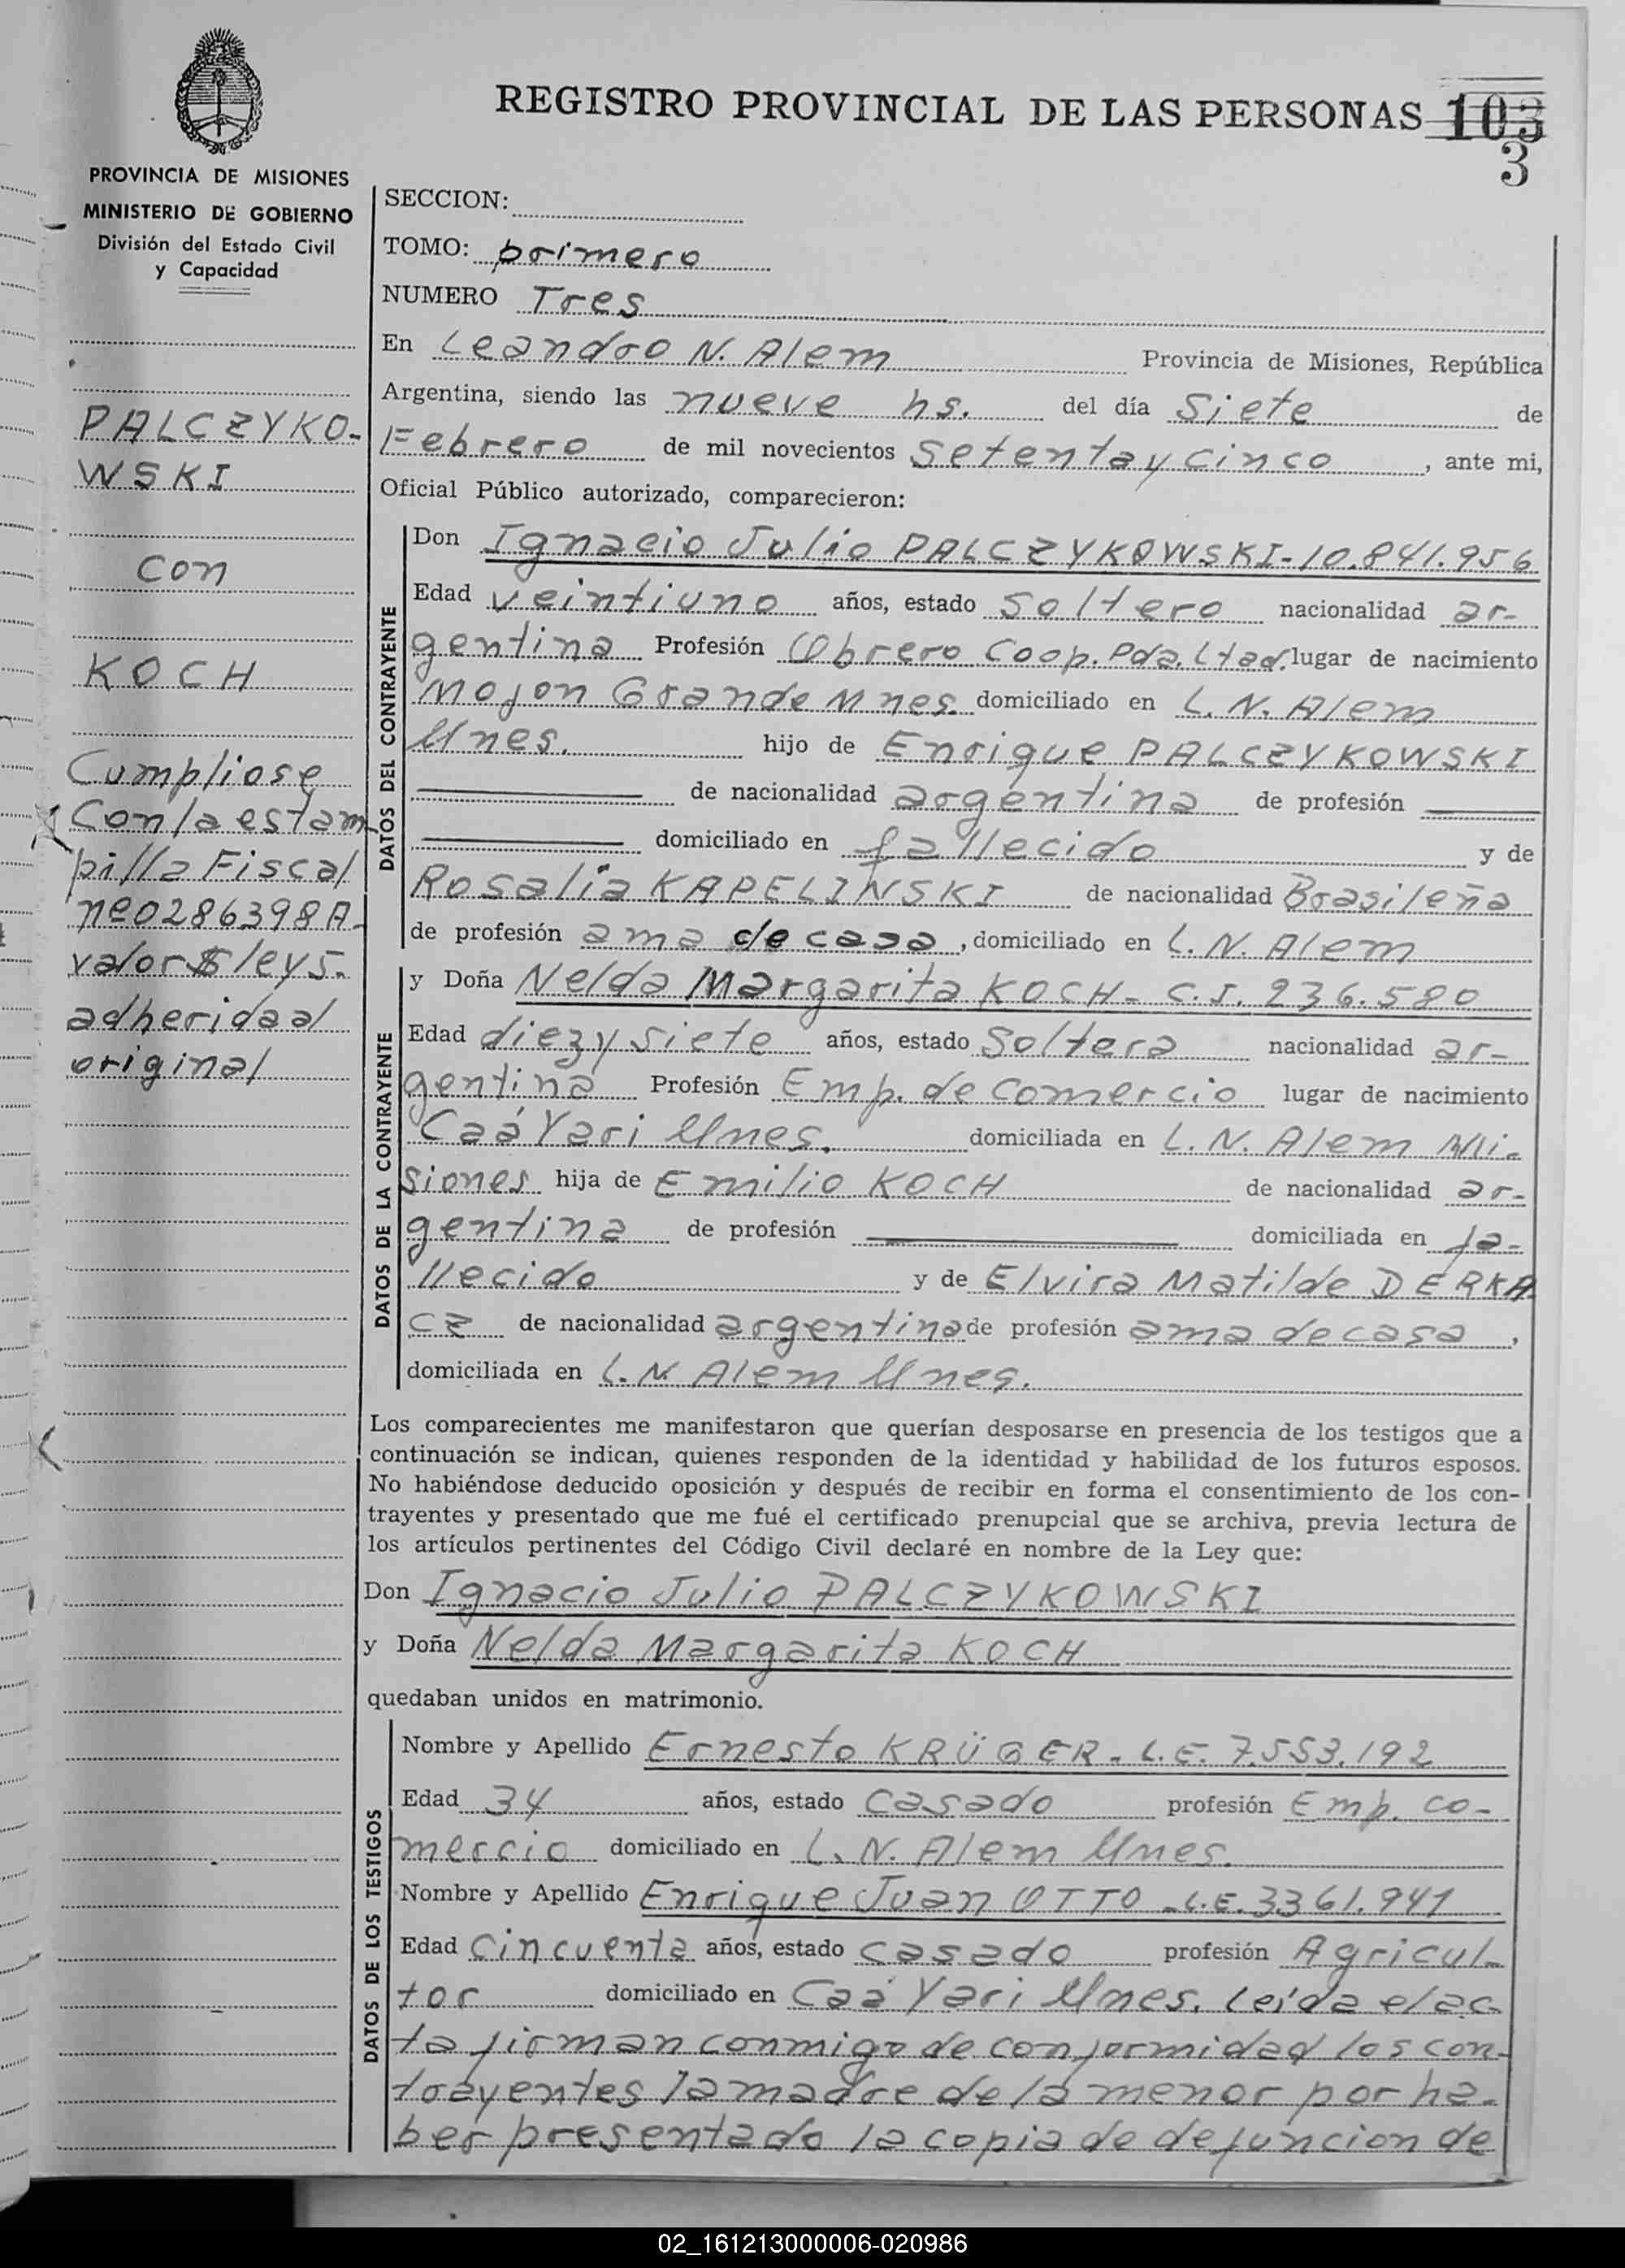 REGISTRO PROVINCIAL DE LAS PERSONAS 103
3
PROVINCIA DE MISIONES
MINISTERIO DE GOBIERNO
División del Estado Civil
y Capacidad
PALCZYKO-
WSKI
con
KOCH
Cumpliose
Con la estam
pilla Fiscal
nº0286398A-
valor $ ley 5.
adherida al
original
SECCION:
TOMO: primero
NUMERO Tres
En Leandro N. Alem Provincia de Misiones, República
Argentina, siendo las nueve hs. del día siete de
Febrero de mil novecientos setenta y cinco, ante mi,
Oficial Público autorizado, comparecieron:
DATOS DEL CONTRAYENTE
Don Ignacio Julio PALCZYKOWSKI-10.841.956
Edad veintiuno años, estado soltero nacionalidad ar-
gentina Profesión Obrero Coop. Pda. Ltad. lugar de nacimiento
Mojon Grande Mnes. domiciliado en L. N. Alem
Mnes. hijo de Enrique PALCZYKOWSKI
de nacionalidad argentina de profesión
domiciliado en fallecido y de
Rosalia KAPELINSKI de nacionalidad Brasileña
de profesión ama de casa, domiciliado en L. N. Alem
DATOS DE LA CONTRAYENTE
y Doña Nelda Margarita KOCH- C.I. 236.580
Edad diez y siete años, estado Soltera nacionalidad ar-
gentina Profesión Emp. de Comercio lugar de nacimiento
Caá Yari Mnes. domiciliada en L. N. Alem Mi-
siones hija de Emilio KOCH de nacionalidad ar-
gentina de profesión domiciliada en fa-
llecido y de Elvira Matilde DERKA
CZ de nacionalidad argentina de profesión ama de casa,
domiciliada en L. N. Alem Mnes.
Los comparecientes me manifestaron que querían desposarse en presencia de los testigos que a
continuación se indican, quienes responden de la identidad y habilidad de los futuros esposos.
No habiéndose deducido oposición y después de recibir en forma el consentimiento de los con-
trayentes y presentado que me fué el certificado prenupcial que se archiva, previa lectura de
los artículos pertinentes del Código Civil declaré en nombre de la Ley que:
Don Ignacio Julio PALCZYKOWSKI
y Doña Nelda Margarita KOCH
quedaban unidos en matrimonio.
DATOS DE LOS TESTIGOS
Nombre y Apellido Ernesto KRÜGER- L.E. 7.553.192
Edad 34 años, estado casado profesión Emp. co-
mercio domiciliado en L. N. Alem Mnes.
Nombre y Apellido Enrique Juan OTTO -L.E. 3361.941
Edad Cincuenta años, estado casado profesión Agricul-
tor domiciliado en Caá Yari Mnes. Leida el ac-
ta firman conmigo de conformidad los con-
trayentes la madre de la menor por ha-
ber presentado la copia de defuncion de
02_161213000006-020986